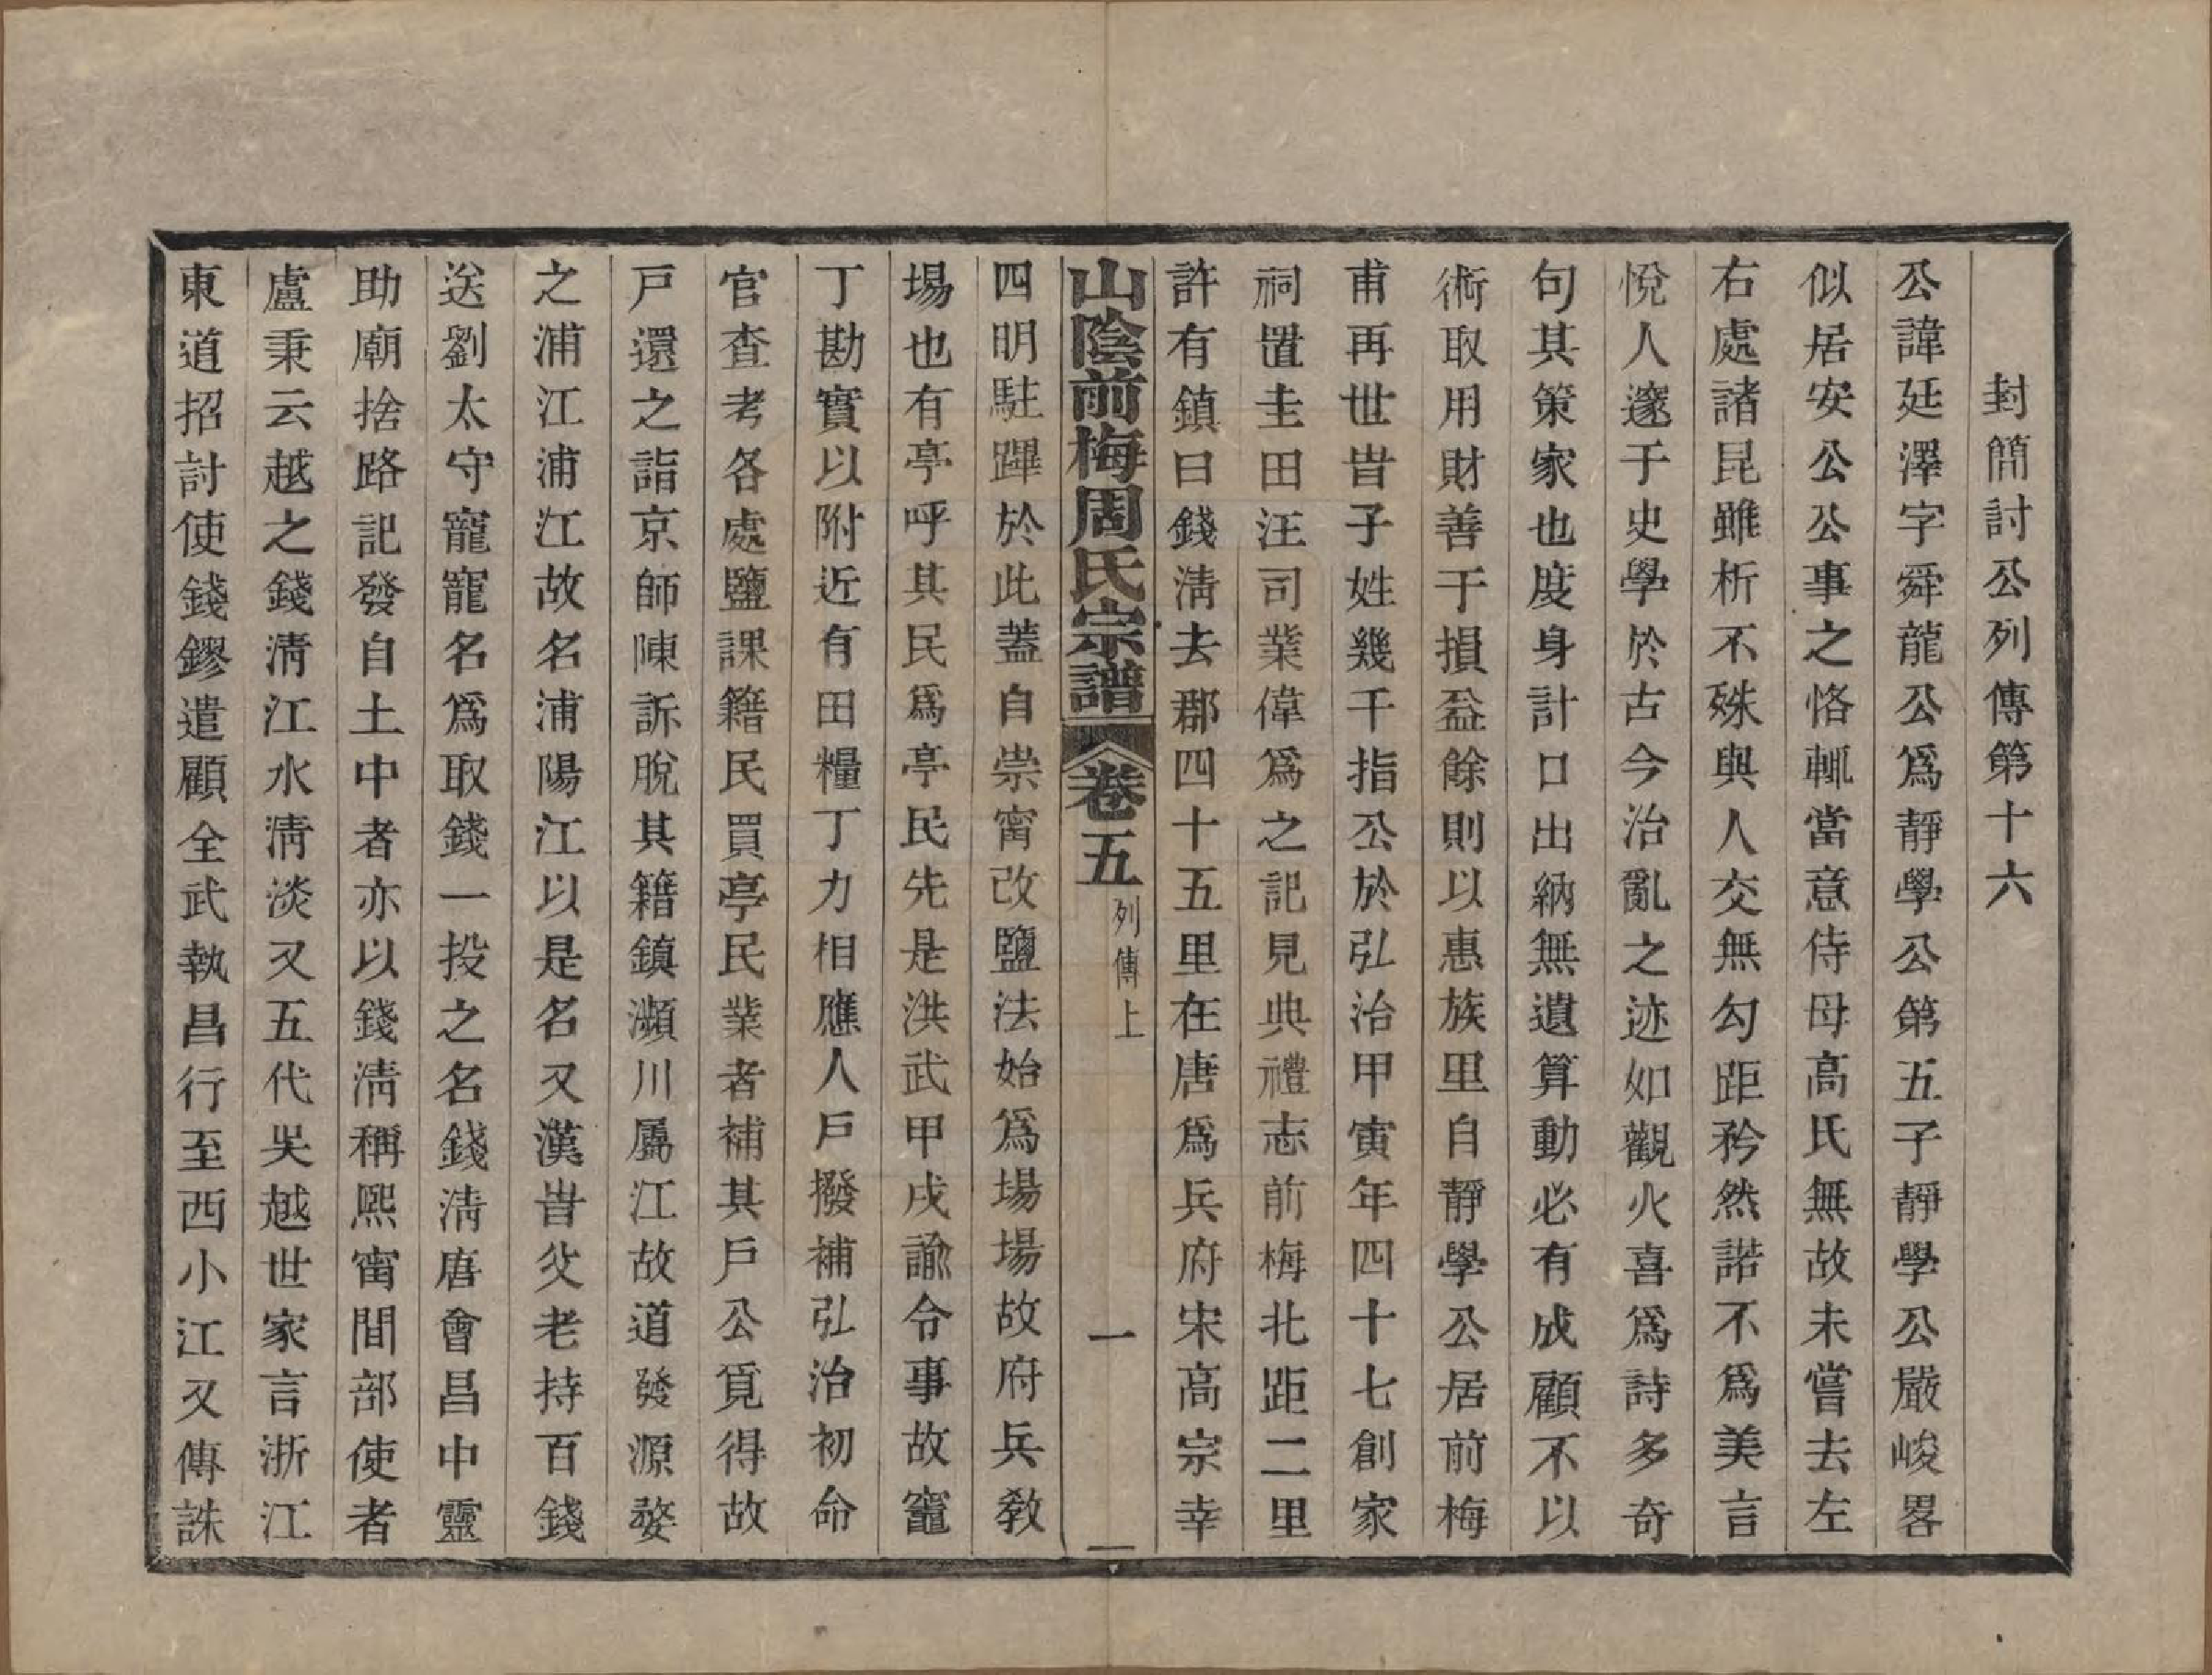 封簡討公列傳第十六
公諱廷澤字舜龍公爲靜學公第五子靜學公嚴峻畧
似居安公公事之恪輒當意侍母高氏無故未嘗去左
右處諸昆雖析不殊與人交無勾距矜然諾不爲美言
悅人邃于史學於古今治亂之迹如觀火喜爲詩多奇
句其策家也度身計口出納無遺算動必有成顧不以
術取用財善于損益餘則以惠族里自靜學公居前梅
甫再世旹子姓幾千指公於弘治甲寅年四十七創家
祠置圭田汪司業偉爲之記見典禮志前梅北距二里
許有鎮曰錢淸去郡四十五里在唐爲兵府宋高宗幸
山陰前梅周氏宗譜 卷五 列傳上 一
四明駐蹕於此蓋自崇甯改鹽法始爲場場故府兵敎
場也有亭呼其民爲亭民先是洪武甲戌諭令事故竈
丁勘實以附近有田糧丁力相應人戶撥補弘治初命
官查考各處鹽課籍民買亭民業者補其戶公覓得故
戶還之詣京師陳訴脫其籍鎮瀕川屬江故道發源婺
之浦江浦江故名浦陽江以是名又漢旹父老持百錢
送劉太守寵寵名爲取錢一投之名錢淸唐會昌中靈
助廟捨路記發自土中者亦以錢淸稱熙甯間部使者
盧秉云越之錢淸江水淸淡又五代吳越世家言浙江
東道招討使錢鏐遣顧全武執昌行至西小江又傳誅